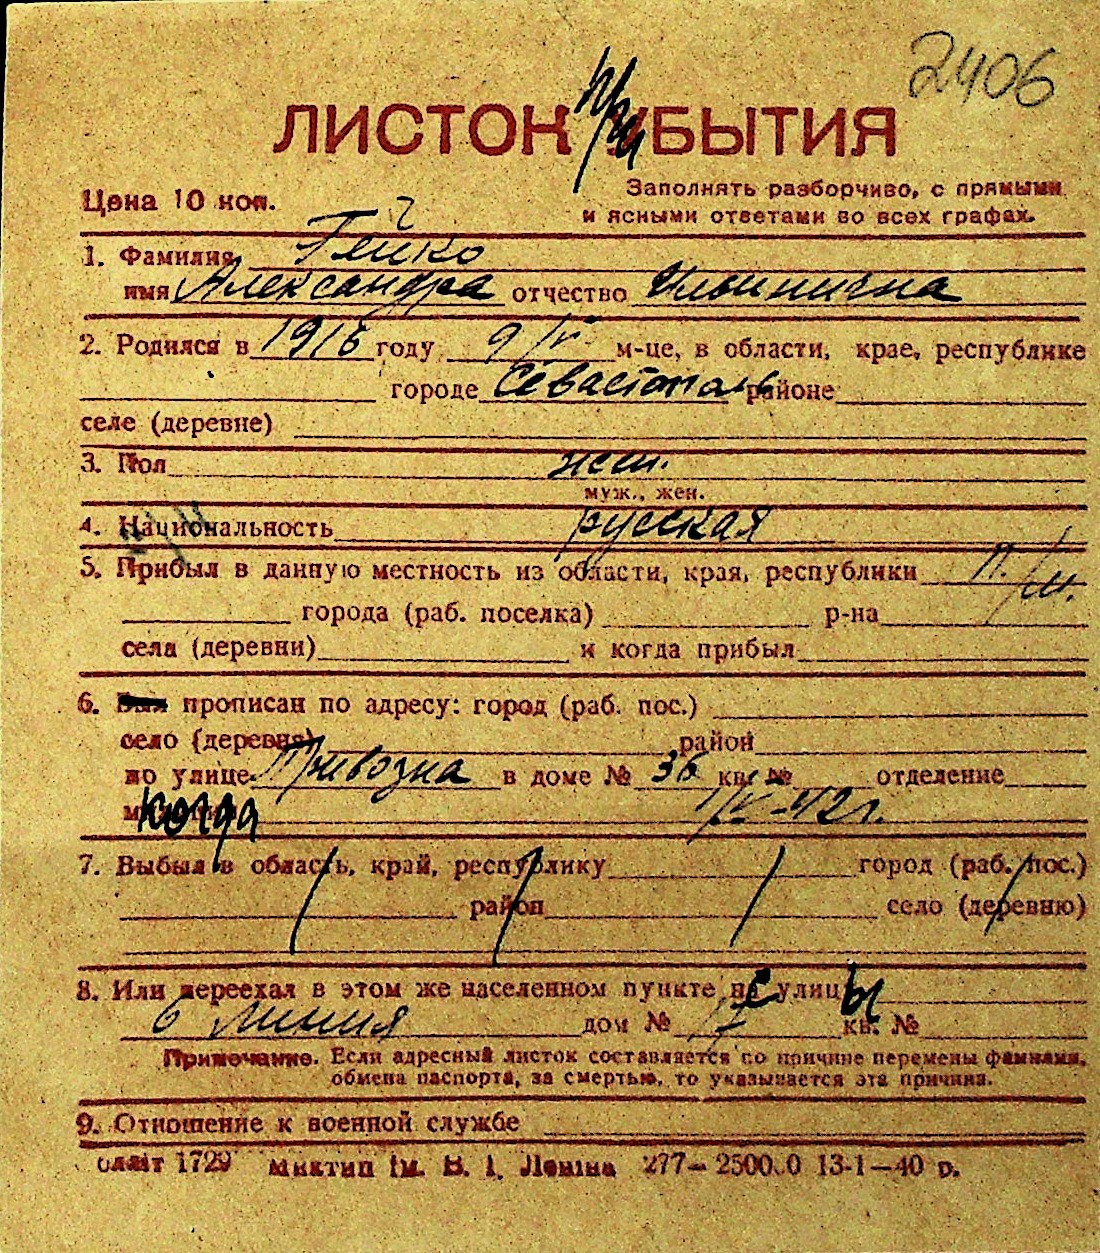 2406
ЛИСТОК При УБЫТИЯ
Цена 10 коп.
Заполнять разборчиво, с прямыми
и ясными ответами во всех графах.
1. Фамилия Гейко
имя Александра отчество Ильинична
2. Родился в 1916 году 9/IV м-це, в области, крае, республике
городе Севастополь районе
селе (деревне)
3. Пол жен.
муж., жен.
4. Национальность русская
5. Прибыл в данную местность из области, края, республики
города (раб. поселка) р-на
села (деревни) и когда прибыл
6. Был прописан по адресу: город (раб. пос.)
село (деревня) район
по улице Привозна в доме № 36 кв. № отделение
когда 1/IV-42 г.
7. Выбыл в область, край, республику город (раб. пос.)
район село (деревню)
8. Или переехал в этом же населенном пункте с улицы
6 линия дом № 17 кв. №
Примечание. Если адресный листок составляется по причине перемены фамилии,
обмена паспорта, за смертью, то указывается эта причина.
9. Отношение к военной службе
1729 Миктип Ім. В. І. Леніна 277— 13-1—40 р.